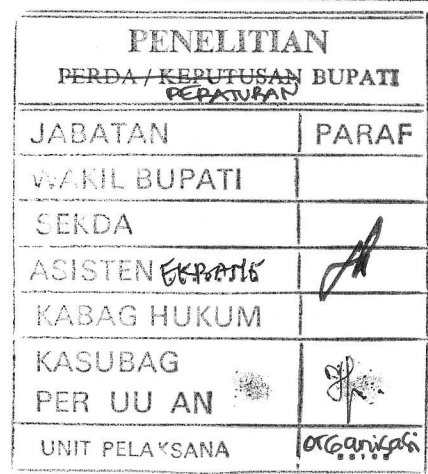 PENELITIAN
PERDA / KEPUTUSAN BUPATI
PERATURAN
JABATAN PARAF
WAKIL BUPATI
SEKDA
ASISTEN
KABAG HUKUM
KASUBAG
PER UU AN
UNIT PELAKSANA organisasi